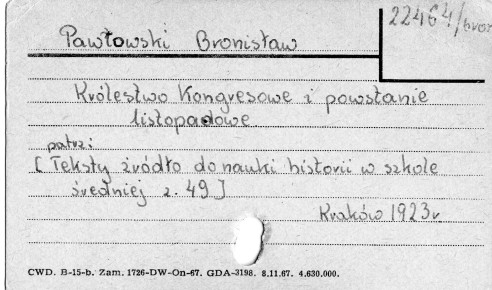 22464/broz
Pawłowski Bronisław
Królestwo Kongresowe i powstanie
listopadowe
patrz:
[Teksty źródło do nauki historii w szkole
średniej z. 49]
Kraków 1923r.
CWD. B-15-b. Zam. 1726-DW-On-67. GDA-3198. 8.11.67. 4.630.000.